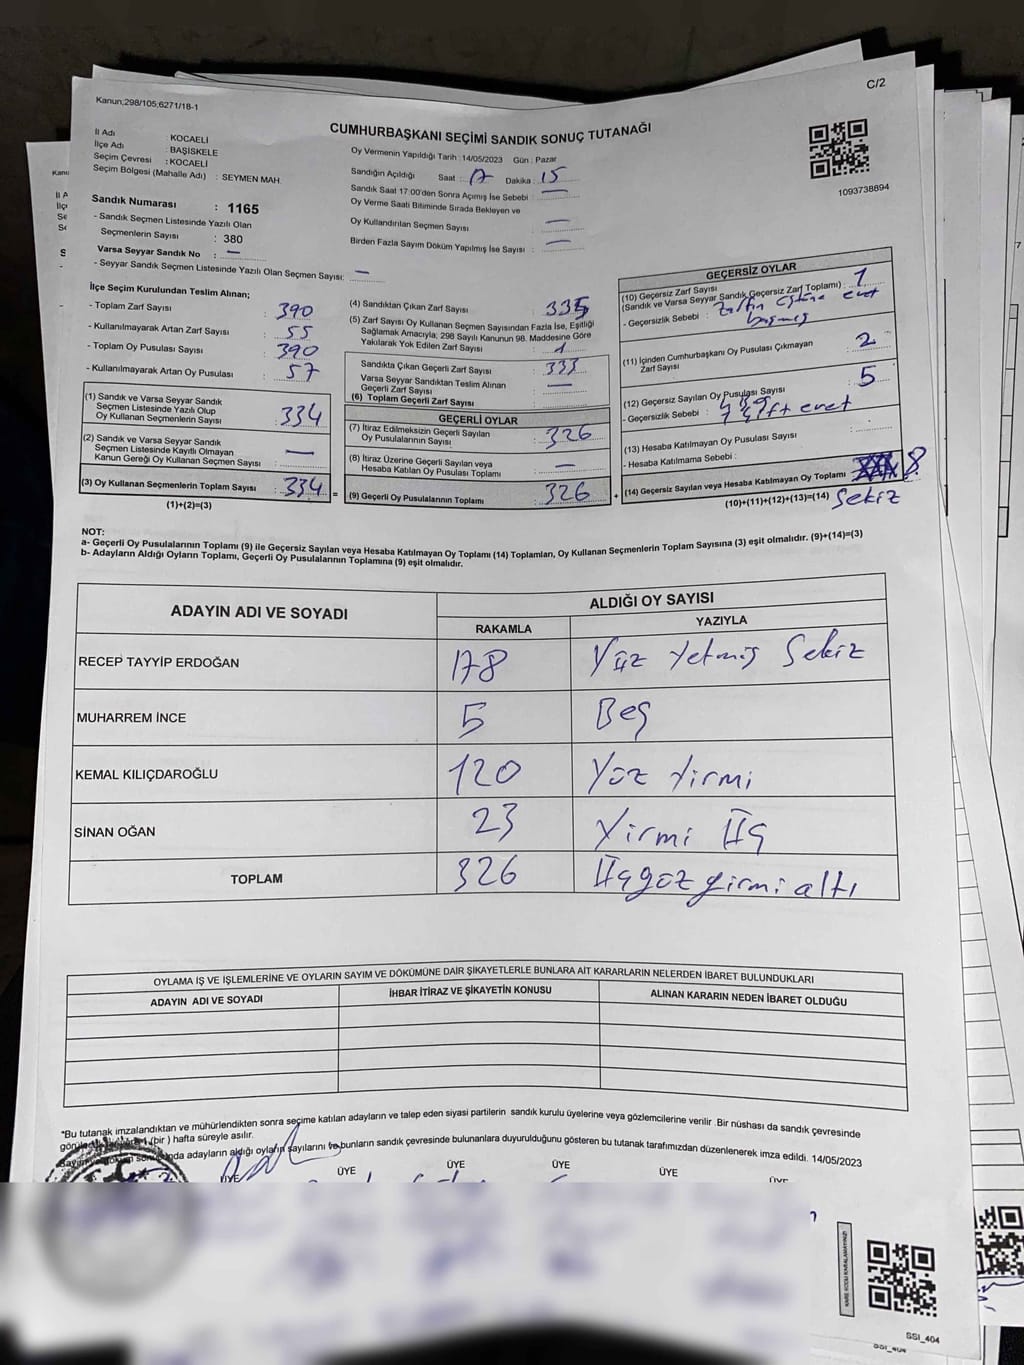 Kanun;298/105;6271/18-1
C/2
CUMHURBAŞKANI SEÇİMİ SANDIK SONUÇ TUTANAĞI
İl Adı : KOCAELİ
İlçe Adı : BAŞİSKELE
Seçim Çevresi : KOCAELİ
Seçim Bölgesi (Mahalle Adı) : SEYMEN MAH.
Sandık Numarası : 1165
- Sandık Seçmen Listesinde Yazılı Olan
Seçmenlerin Sayısı : 380
Varsa Seyyar Sandık No : —
- Seyyar Sandık Seçmen Listesinde Yazılı Olan Seçmen Sayısı: —
Oy Vermenin Yapıldığı Tarih : 14/05/2023 Gün : Pazar
Sandığın Açıldığı Saat : 17 Dakika : 15
Sandık Saat 17:00'den Sonra Açımış İse Sebebi : —
Oy Verme Saati Bitiminde Sırada Bekleyen ve
Oy Kullandırılan Seçmen Sayısı : —
Birden Fazla Sayım Döküm Yapılmış İse Sayısı : —
1093738694
İlçe Seçim Kurulundan Teslim Alınan;
- Toplam Zarf Sayısı : 390
- Kullanılmayarak Artan Zarf Sayısı : 55
- Toplam Oy Pusulası Sayısı : 390
- Kullanılmayarak Artan Oy Pusulası : 57
(1) Sandık ve Varsa Seyyar Sandık
Seçmen Listesinde Yazılı Olup
Oy Kullanan Seçmenlerin Sayısı : 334
(2) Sandık ve Varsa Seyyar Sandık
Seçmen Listesinde Kayıtlı Olmayan
Kanun Gereği Oy Kullanan Seçmen Sayısı : —
(3) Oy Kullanan Seçmenlerin Toplam Sayısı : 334
(1)+(2)=(3)
(4) Sandıktan Çıkan Zarf Sayısı : 335
(5) Zarf Sayısı Oy Kullanan Seçmen Sayısından Fazla İse, Eşitliği
Sağlamak Amacıyla; 298 Sayılı Kanunun 98. Maddesine Göre
Yakılarak Yok Edilen Zarf Sayısı : 1
Sandıkta Çıkan Geçerli Zarf Sayısı : 333
Varsa Seyyar Sandıktan Teslim Alınan
Geçerli Zarf Sayısı : —
(6) Toplam Geçerli Zarf Sayısı :
GEÇERLİ OYLAR
(7) İtiraz Edilmeksizin Geçerli Sayılan
Oy Pusulalarının Sayısı : 326
(8) İtiraz Üzerine Geçerli Sayılan veya
Hesaba Katılan Oy Pusulası Toplamı : —
= (9) Geçerli Oy Pusulalarının Toplamı : 326
GEÇERSİZ OYLAR
(10) Geçersiz Zarf Sayısı
(Sandık ve Varsa Seyyar Sandık Geçersiz Zarf Toplamı) : 1
- Geçersizlik Sebebi : Zarfın üstüne evet
basmış
(11) İçinden Cumhurbaşkanı Oy Pusulası Çıkmayan
Zarf Sayısı : 2
(12) Geçersiz Sayılan Oy Pusulası Sayısı : 5
- Geçersizlik Sebebi : evet
(13) Hesaba Katılmayan Oy Pusulası Sayısı :
- Hesaba Katılmama Sebebi :
+ (14) Geçersiz Sayılan veya Hesaba Katılmayan Oy Toplamı 8
(10)+(11)+(12)+(13)=(14) Sekiz
NOT:
a- Geçerli Oy Pusulalarının Toplamı (9) ile Geçersiz Sayılan veya Hesaba Katılmayan Oy Toplamı (14) Toplamları, Oy Kullanan Seçmenlerin Toplam Sayısına (3) eşit olmalıdır. (9)+(14)=(3)
b- Adayların Aldığı Oyların Toplamı, Geçerli Oy Pusulalarının Toplamına (9) eşit olmalıdır.
ADAYIN ADI VE SOYADI
ALDIĞI OY SAYISI
RAKAMLA YAZIYLA
RECEP TAYYİP ERDOĞAN 178 Yüz Yetmiş Sekiz
MUHARREM İNCE 5 Beş
KEMAL KILIÇDAROĞLU 120 Yüz Yirmi
SİNAN OĞAN 23 Yirmi Üç
TOPLAM 326 Üçyüz yirmi altı
OYLAMA İŞ VE İŞLEMLERİNE VE OYLARIN SAYIM VE DÖKÜMÜNE DAİR ŞİKAYETLERLE BUNLARA AİT KARARLARIN NELERDEN İBARET BULUNDUKLARI
ADAYIN ADI VE SOYADI İHBAR İTİRAZ VE ŞİKAYETİN KONUSU ALINAN KARARIN NEDEN İBARET OLDUĞU
*Bu tutanak imzalandıktan ve mühürlendikten sonra seçime katılan adayların ve talep eden siyasi partilerin sandık kurulu üyelerine veya gözlemcilerine verilir. Bir nüshası da sandık çevresinde
(bir) hafta süreyle asılır.
adayların aldığı oyların sayılarını ve bunların sandık çevresinde bulunanlara duyurulduğunu gösteren bu tutanak tarafımızdan düzenlenerek imza edildi. 14/05/2023
ÜYE ÜYE ÜYE ÜYE ÜYE ÜYE
SSI_404